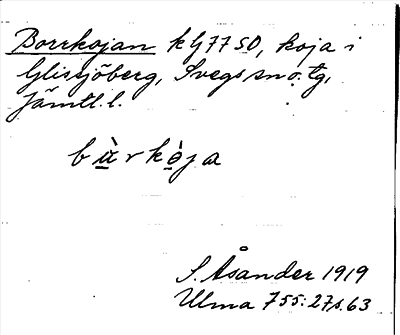 Borrkojan kG7750, koja i
Glissjöberg, Svegs sn o. tg,
Jämtl. l.
bùrkòja
S. Åsander 1919
Ulma 755:27 s. 63